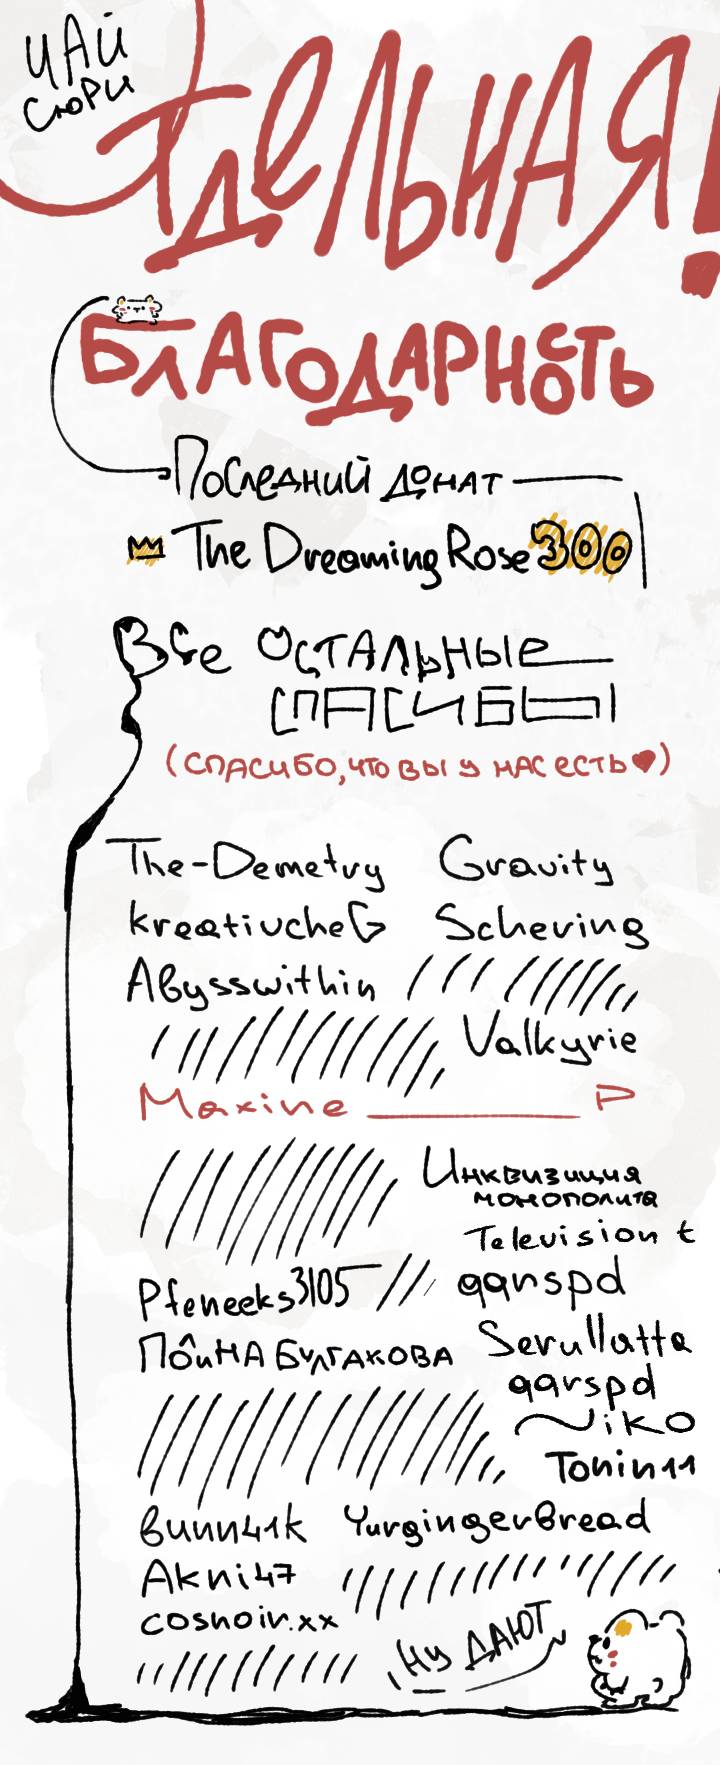 ЧАЙ
СЮРИ
ОТДЕЛЬНАЯ!
БЛАГОДАРНОСТЬ
Последний донат
The Dreaming Rose 300
Все остальные
СПАСИБЫ
(СПАСИБО, ЧТО ВЫ У НАС ЕСТЬ♥)
The-Demetry Gravity
kreativcheG Schering
Abysswithin
Valkyrie
Maxine P
Инквизиция
монополита
Television t
Pfeneeks3105 qqrspd
БУЛГАКОВА Serullatte
qqrspd
Niko
Tonin11
bunn41k YurgingerBread
Akni47
cosnoir.xx
Ну ДАЮТ